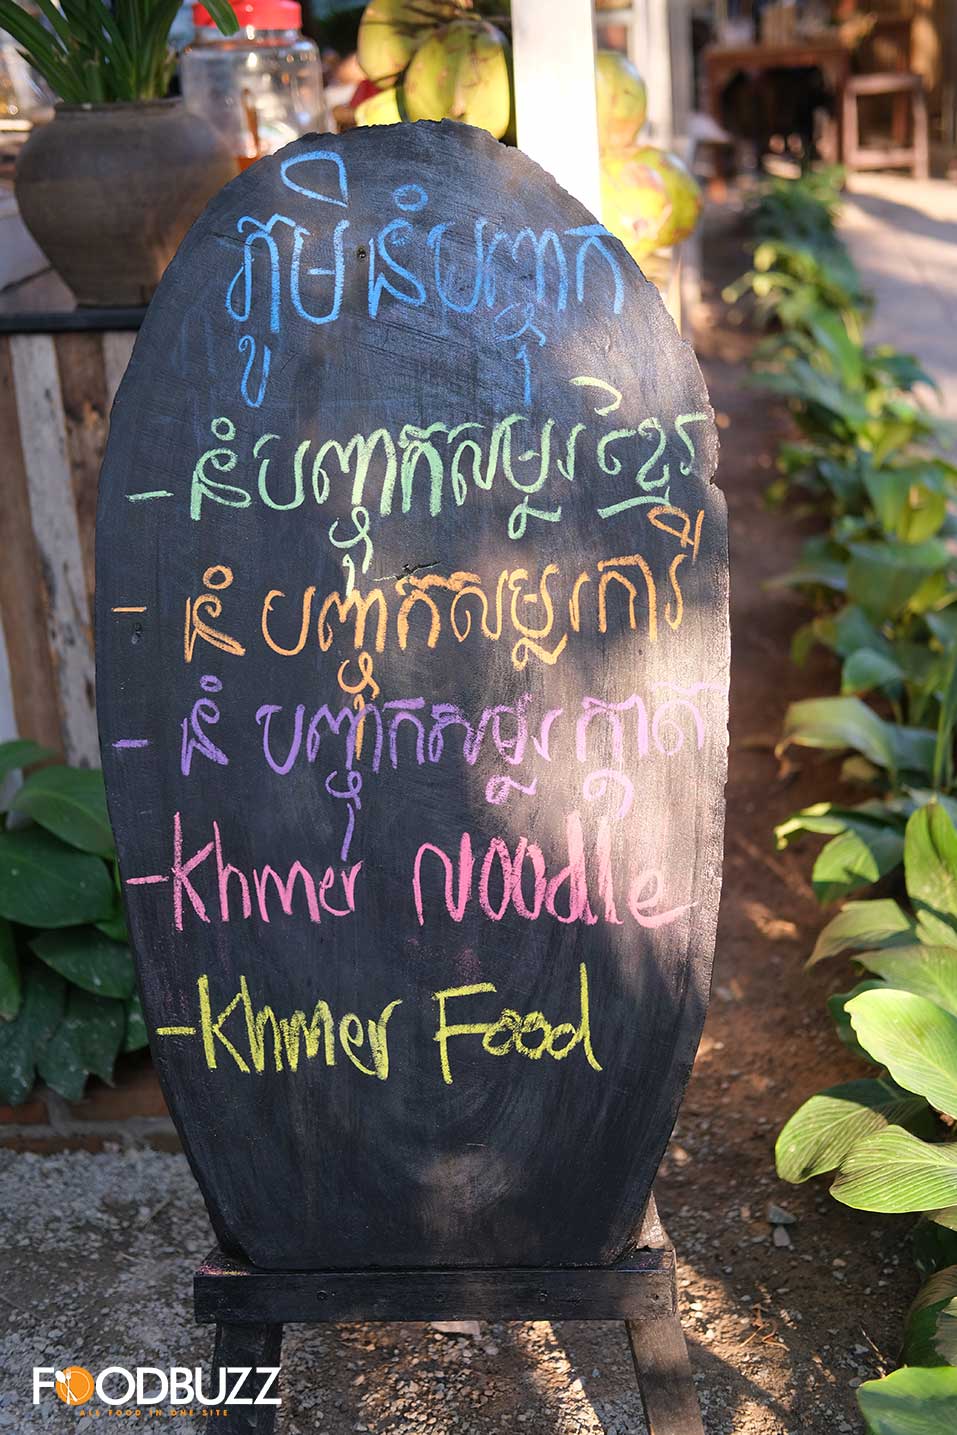 ភូមិនំបញ្ចុក
- នំបញ្ចុកសម្លរខ្មែរ
- នំបញ្ចុកសម្លរការី
- នំបញ្ចុកសម្លរខ្លាតី
- Khmer Noodle
- Khmer Food
FOODBUZZ
ALL FOOD IN ONE SITE